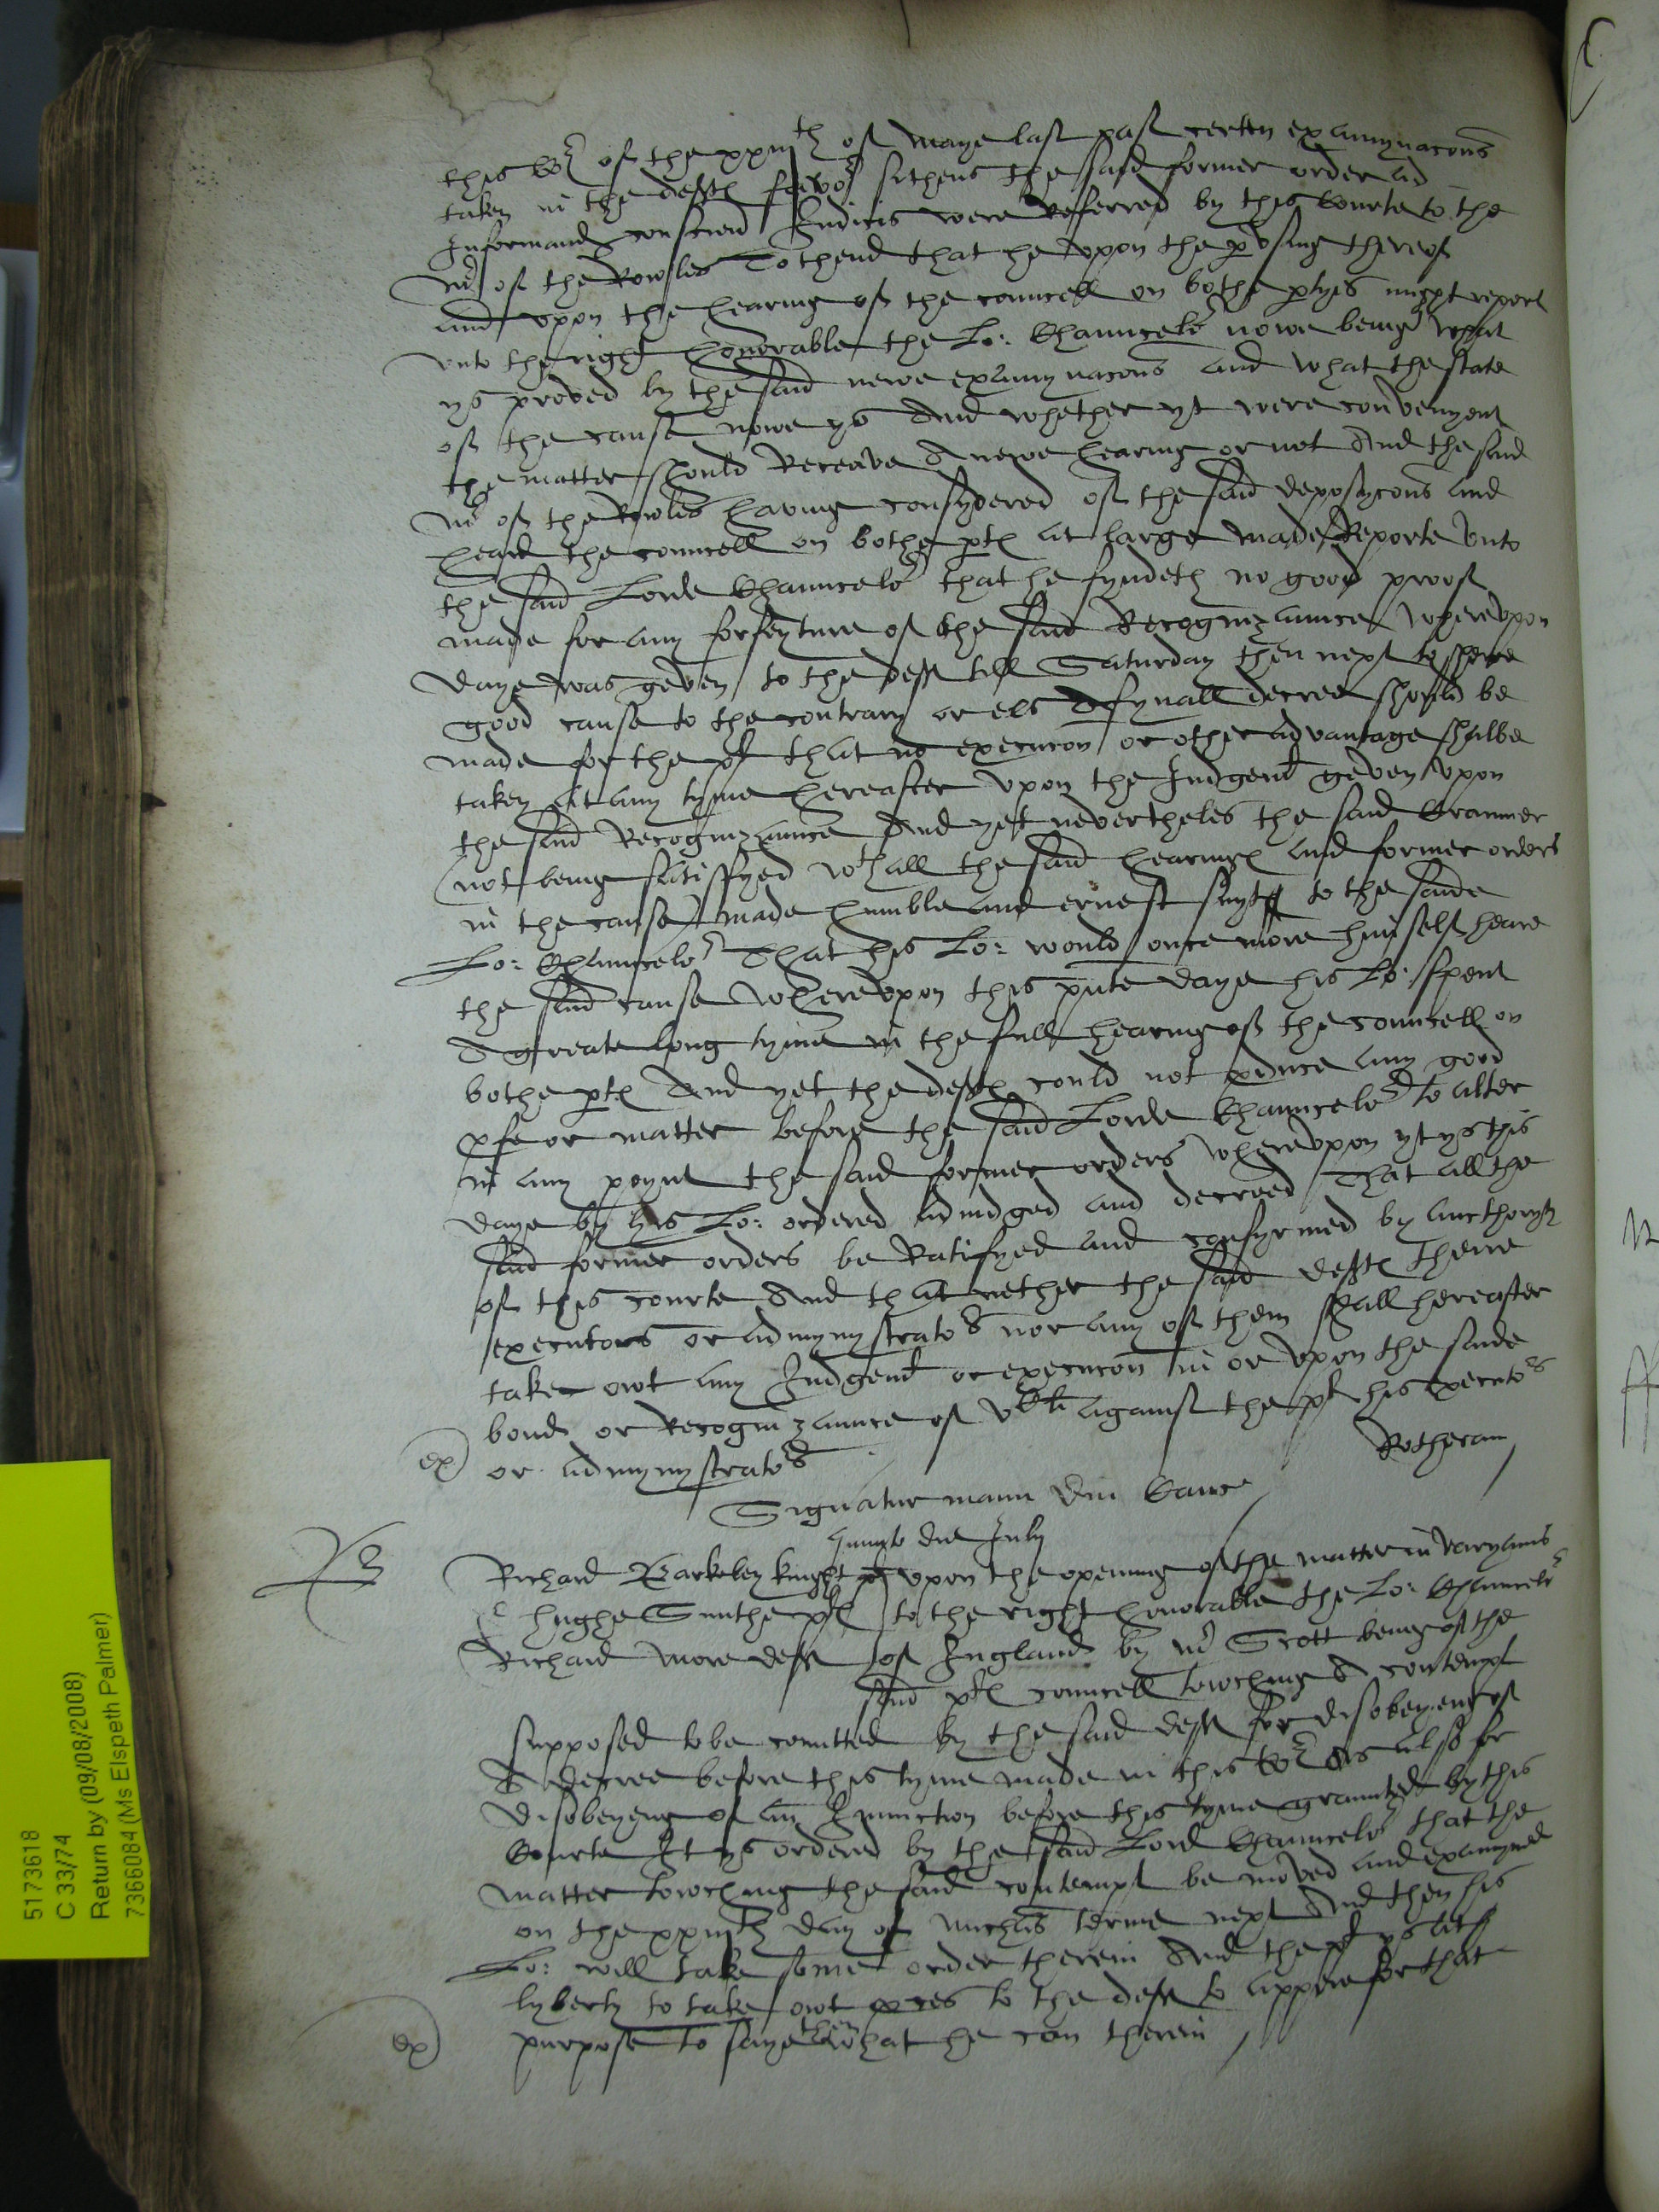 this Cor of the xxiiith of maye last past certen examynacons
taken in the deftes favor sithens the said former order ad
Informand conscienc Iudicis were Referred by this Courte to the
mr of the Rowles To thend that he vpon the pervsing thereof
and vpon the hearing of the councell on bothe partyes might report
vnto the right honorable the Lo: Chauncelor nowe being what
ys proved by the said newe examynacons and what the state
of the cause nowe ys And whether yt were convenyent
the matter should Receave A newe hearing or not And the said
mr of the Rowles having consydered of the said deposycons and
heard the councell on bothe ptes at large made Reporte vnto
the said Lorde Chauncelor that he fyndeth no good proof
made for any forfeyture of the said Recognizaunce wherevpon
daye was geven to the deft till Saturday then next to shewe
good cause to the contrary or els A fynall decree should be
made for the pl that no execucon or other advantage shalbe
taken at any tyme hereafter vpon the Iudgent geven vpon
the said Recognizaunce And yet nevertheles the said Cranmer
(not being satisfyed wth all the said hearinges and former orders
in the cause) made humble and ernest suyt to the saide
Lo: Chauncelor That his Lo: would once more himself heare
the said cause Wherevpon this pnte daye his Lo: spent
A greate long tyme in the full hearing of the councell on
bothe ptes And yet the deftes could not pduce any good
pfe or matter before the said Lorde Chauncelor to alter
in any poynt the said former orders wherevpon yt ys this
daye by his Lo: ordered adiudged and decreed That all the
said former orders be Ratifyed and confyrmed by aucthoryty
of this courte And that nether the said deftes theire
executors or admynystrators nor any of them shall hereafter
take owt any Iudgent or execucon in or vpon the saide
bond or Recognizaunce of vCli against the pl his executors
ex) or admynystrators
Rotheram
Signatur manu dni Canc
quinto die Iuly
Richard Barkeley knight & vpon the opening of the matter in varyans
Hughe Smithe ples to the right honorable the Lo: Chauncelor
Richard more deft of England by mr Scott being of the
said ples councell towching A contempt
supposed to be comitted by the said deft for disobeyeng of
A decree before this tyme made in this Cor As also for
disobeyeng of an Iniunction before this tyme graunted by this
Courte It ys ordered by the said Lord Chauncelor that the
matter towching the said contempt be moved and examyned
on the xxiiith day of michas terme next And then his
Lo: will take some order therein And the pl ys at
lyberty to take owt pces to the deft to appere for that
ex) purpose to saye then what he can therein
5173618
C 33/74
Return by (09/08/2008)
7366084 (Ms Elspeth Palmer)